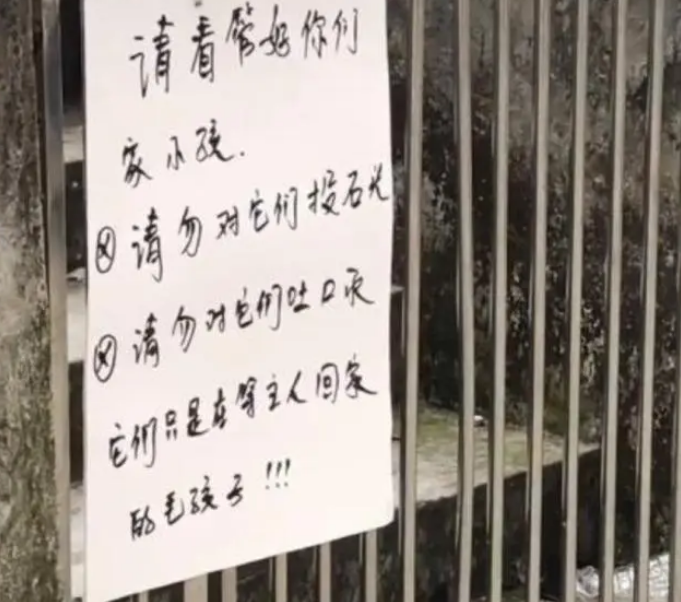 请看管好你们
家小孩.
⊗请勿对它们投石头
⊗请勿对它们吐口水
它们只是在等主人回家
的毛孩子!!!